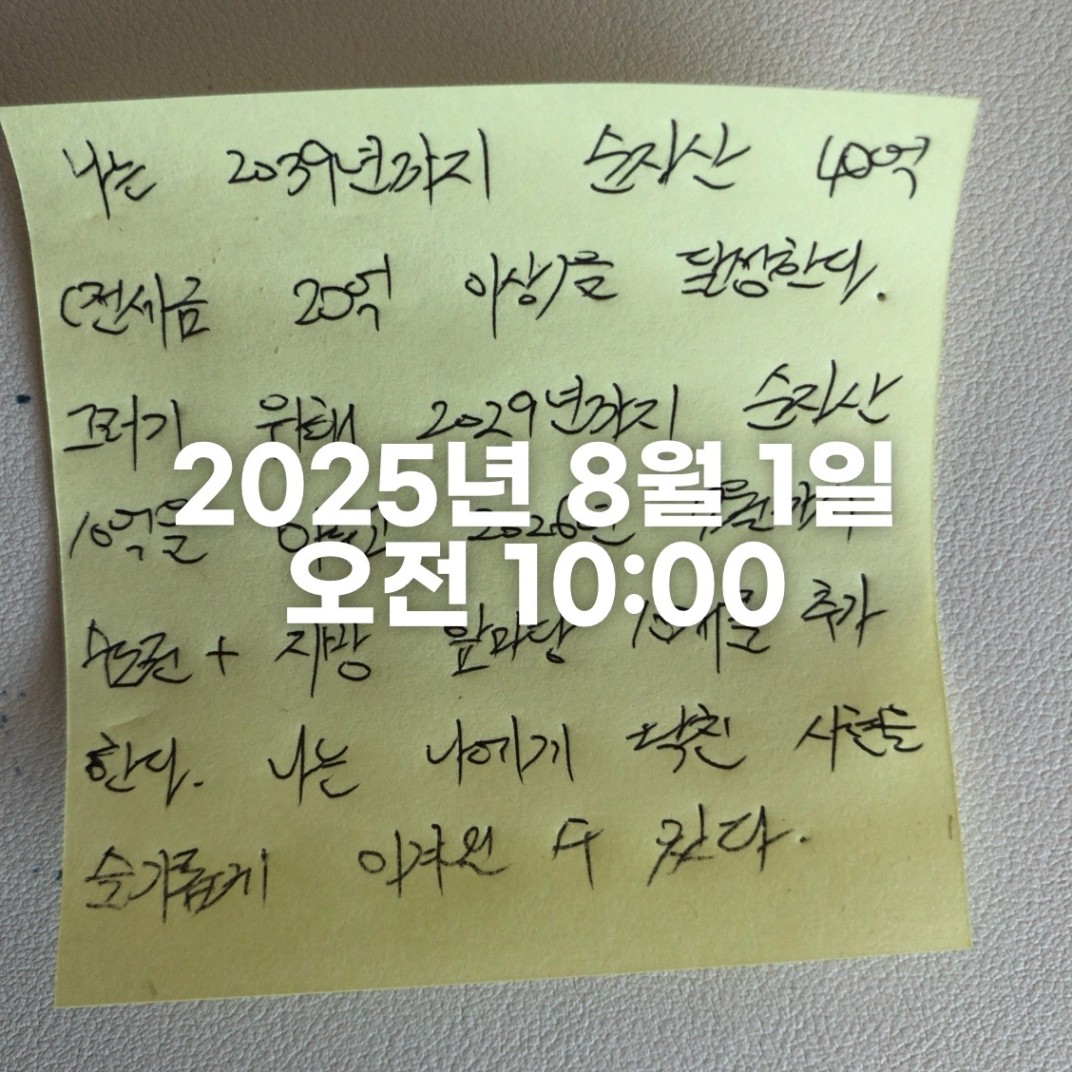 나는 2039년까지 순자산 40억
(전세금 20억 이상)을 달성한다.
그러기 위해 2029년까지 순자산
10억을 2026년
수도권 + 지방 앞마당 추가
한다. 나는 나에게 닥친 시련을
슬기롭게 이겨낼 수 있다.
2025년 8월 1일
오전 10:00